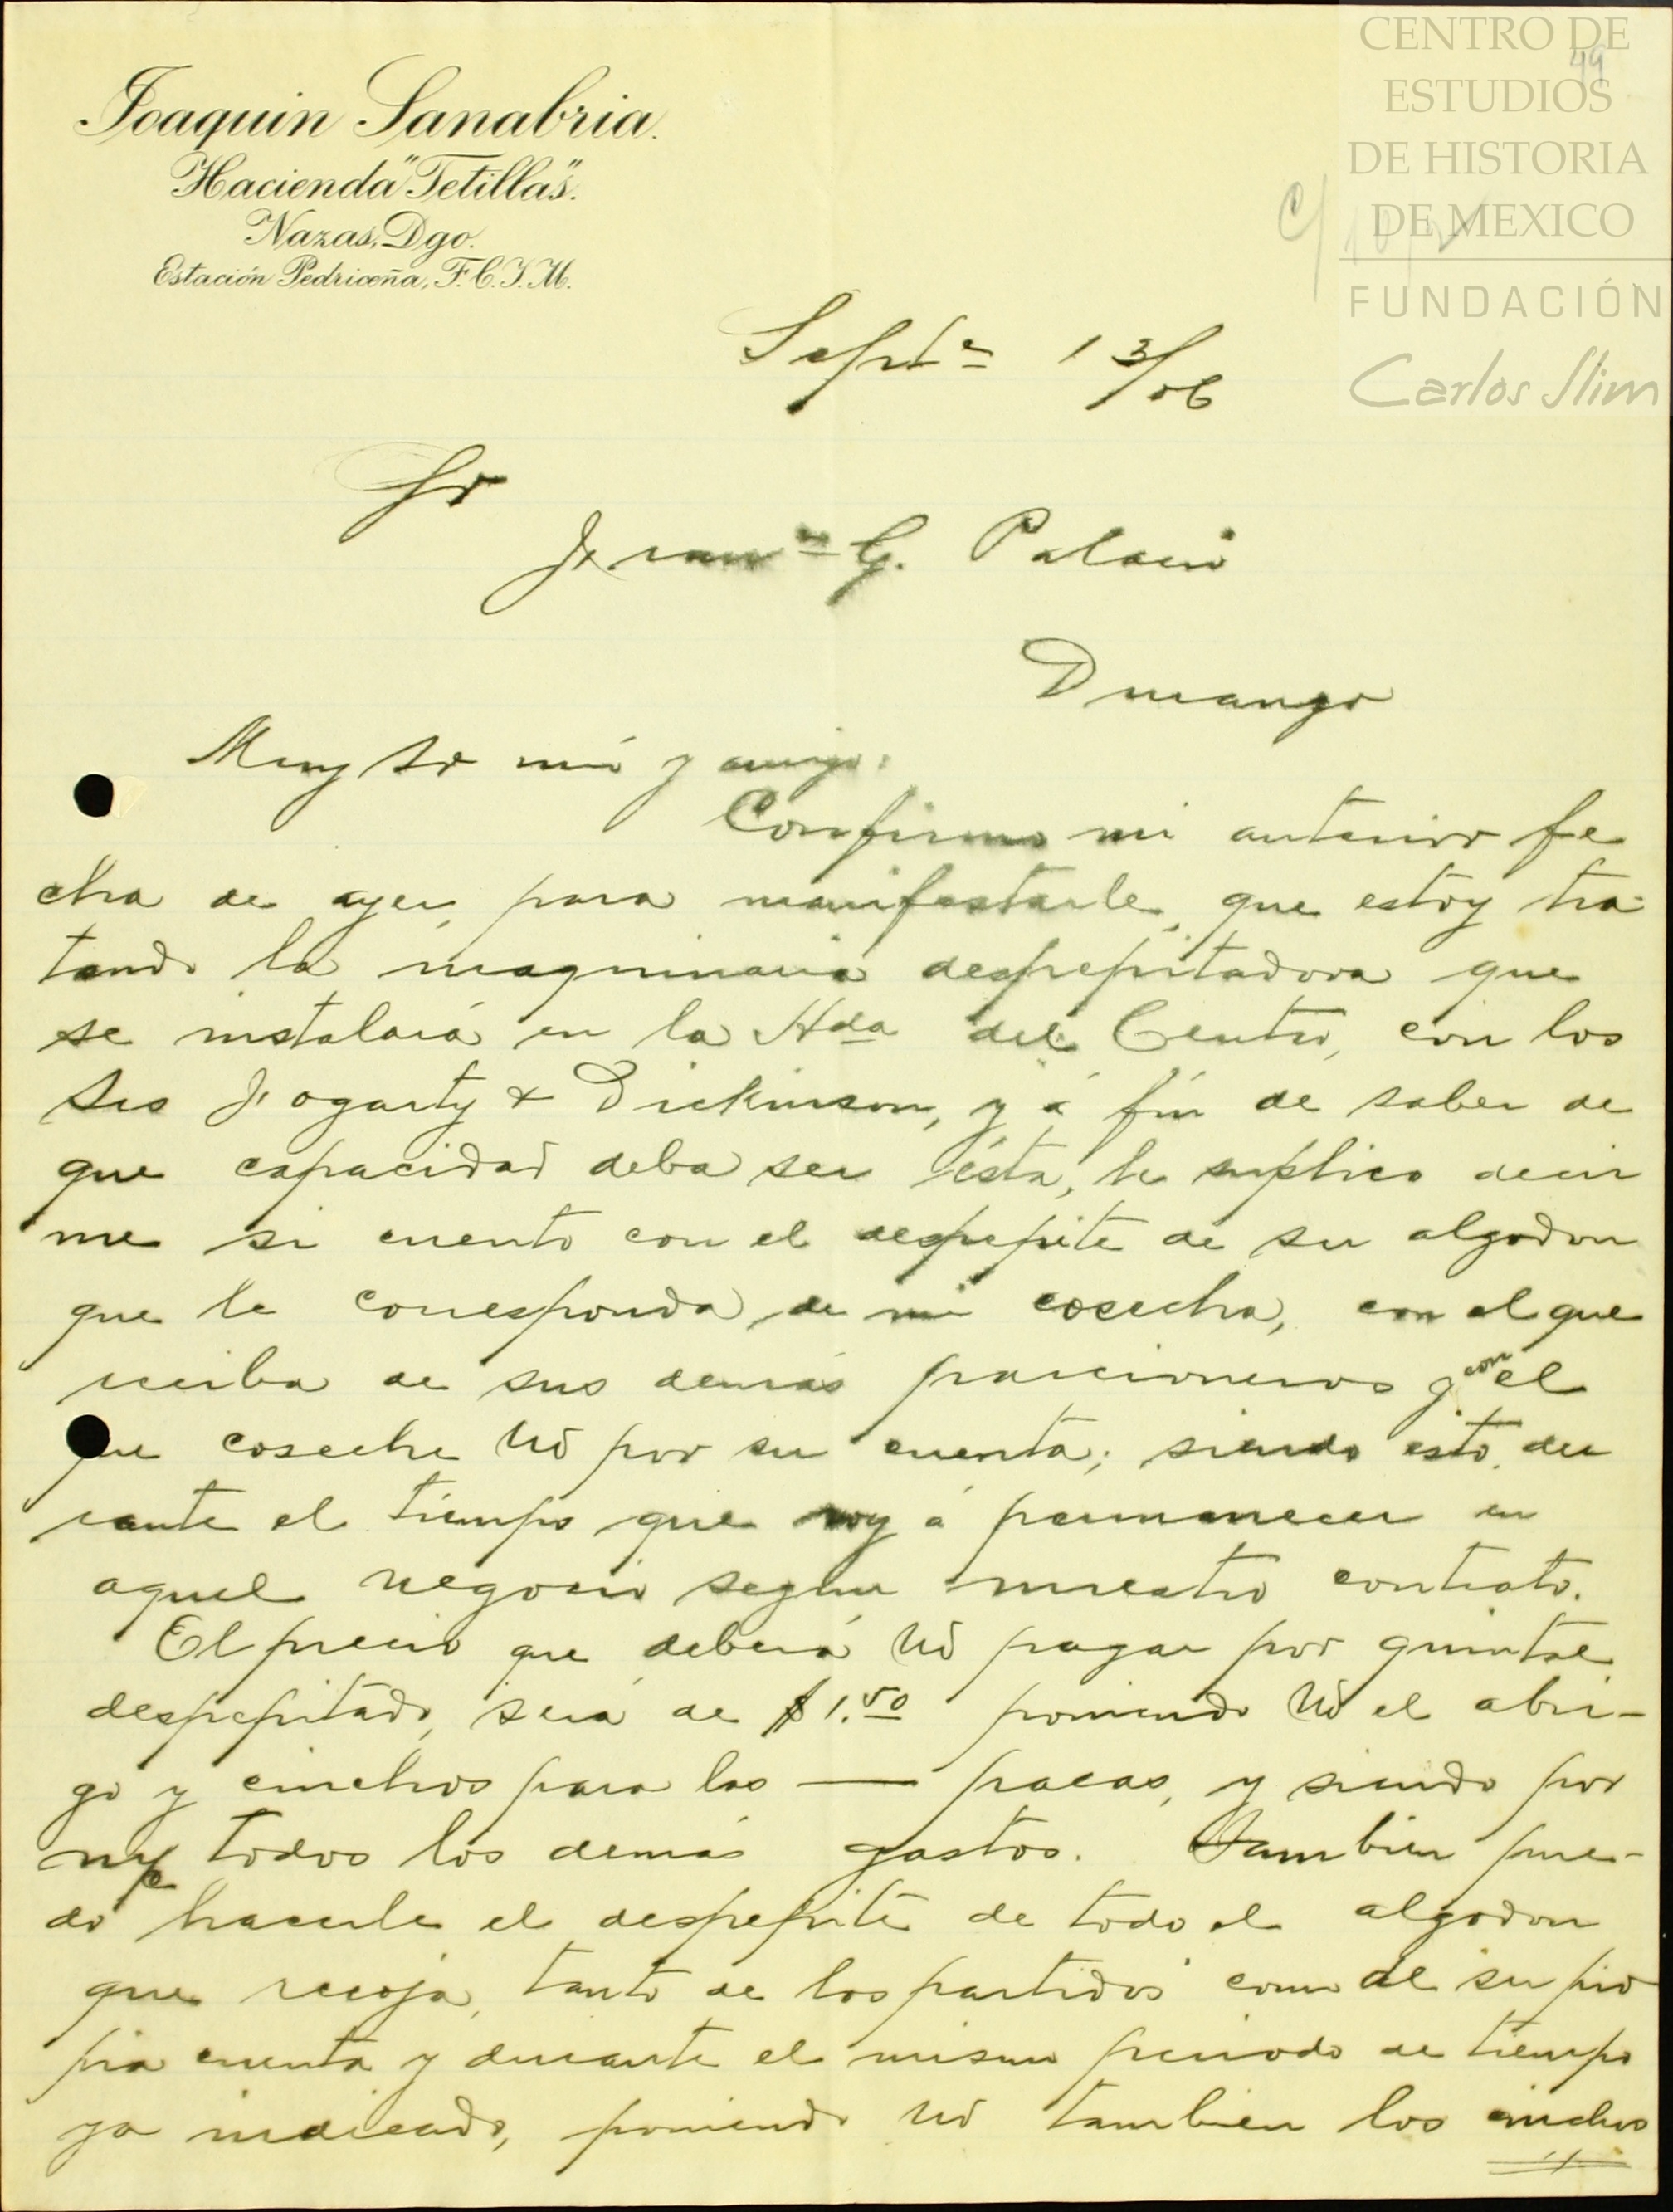 CENTRO DE
ESTUDIOS
DE HISTORIA
DE MEXICO
FUNDACIÓN
Carlos Slim
49
Joaquin Sanabria.
Hacienda "Tetillas".
Nazas, Dgo.
Estación Pedriceña, F.C.I.M.
Septe 13/06
Sr
Franco G. Palacio
Durango
Muy Sr mio y amigo:
Confirmo mi anterior fe
cha de ayer, para manifestarle, que estoy tra-
tando la maquinaria despepitadora que
se instalará en la Hda del Centro, con los
Sres Fogarty & Dickinson, y á fin de saber de
que capacidad deba ser ésta, le suplico decir
me si cuento con el despepite de su algodon
que le corresponda de mi cosecha, con el que
reciba de sus demás parcioneros y con el
que coseche Ud por su cuenta; siendo esto du
rante el tiempo que voy á permanecer en
aquel negocio segun nuestro contrato.
El precio que deberá Ud pagar por quintal
despepitado, será de $1.50 poniendo Ud el abri-
go y cinchos para las — pacas, y siendo por
my todos los demás gastos. Tambien pue-
do hacerle el despepite de todo el algodon
que recoja, tanto de los partidos como de su pro
pia cuenta y durante el mismo periodo de tiempo
ya indicado, poniendo Ud tambien los cinchos